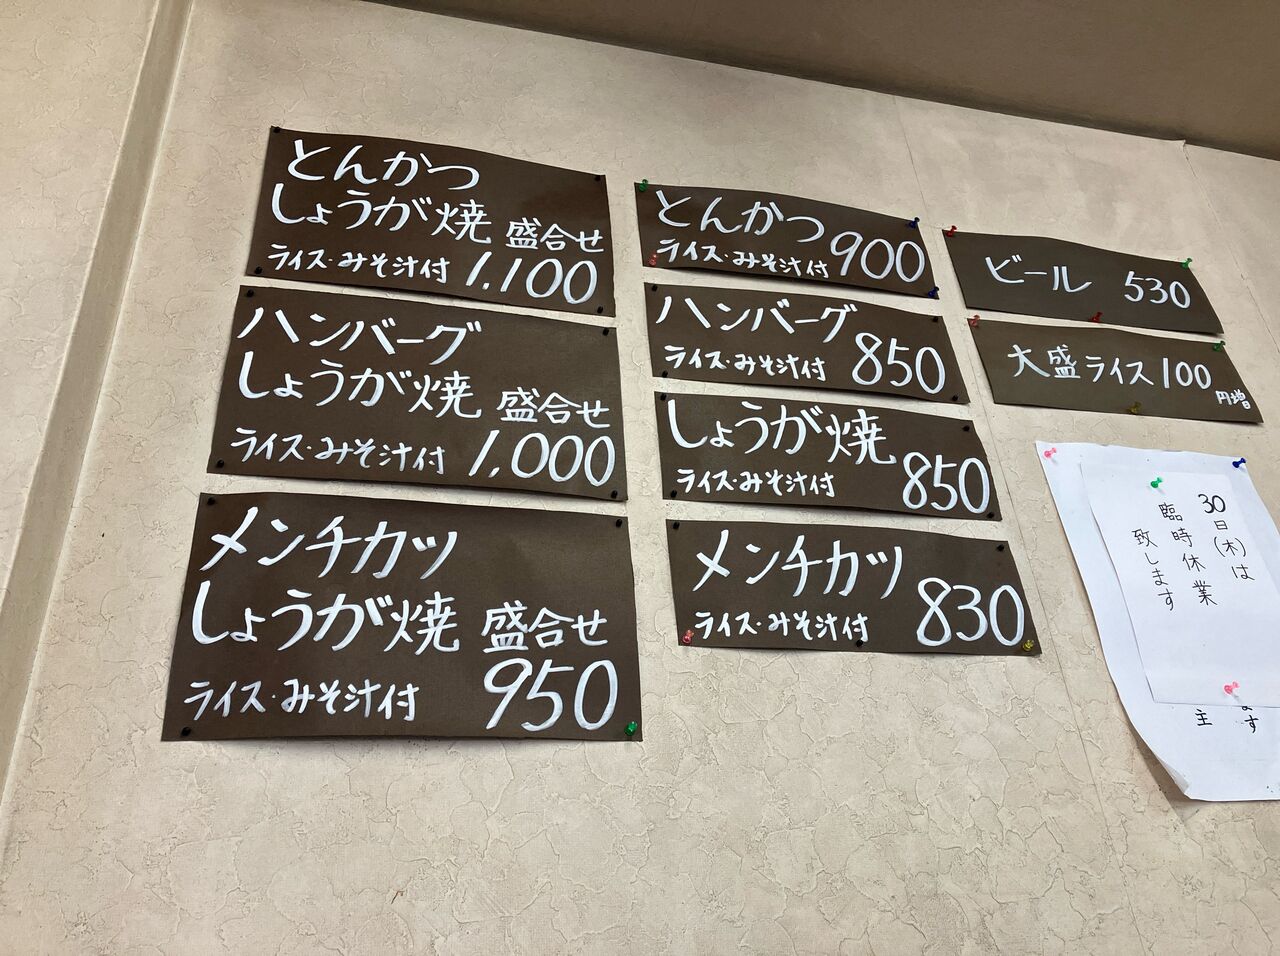 とんかつ
しょうが焼 盛合せ
ライス・みそ汁付 1,100
ハンバーグ
しょうが焼 盛合せ
ライス・みそ汁付 1,000
メンチカツ
しょうが焼 盛合せ
ライス・みそ汁付 950
とんかつ
ライス・みそ汁付 900
ハンバーグ
ライス・みそ汁付 850
しょうが焼
ライス・みそ汁付 850
メンチカツ
ライス・みそ汁付 830
ビール 530
大盛ライス100
円増
30日(木)は
臨時休業
致します
ます
主